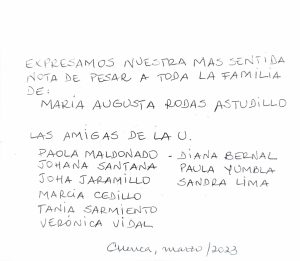 EXPRESAMOS NUESTRA MAS SENTIDA
NOTA DE PESAR A TODA LA FAMILIA
DE:
MARIA AUGUSTA RODAS ASTUDILLO
LAS AMIGAS DE LA U.
PAOLA MALDONADO - DIANA BERNAL
JOHANA SANTANA PAULA YUMBLA
JOHA JARAMILLO SANDRA LIMA
MARCIA CEDILLO
TANIA SARMIENTO
VERÓNICA VIDAL
Cuenca, marzo/2023